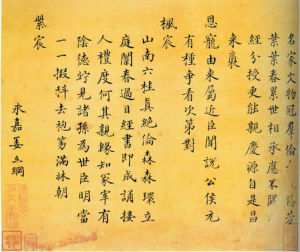 名家文物冠羣倫芳
葉葉春累世相承應不
經分授更能親慶源自是昌
来裔
恩寵由来屬近臣聞說公侯元
有種爭看次第對
楓宸
山南六桂真絕倫森森環立
庭闈春過目經書即成誦接
人禮度何其親知冢宰有
陰德竚見諸孫為世臣明當
一一掇科去袍笏滿牀朝
紫宸
永嘉姜立綱